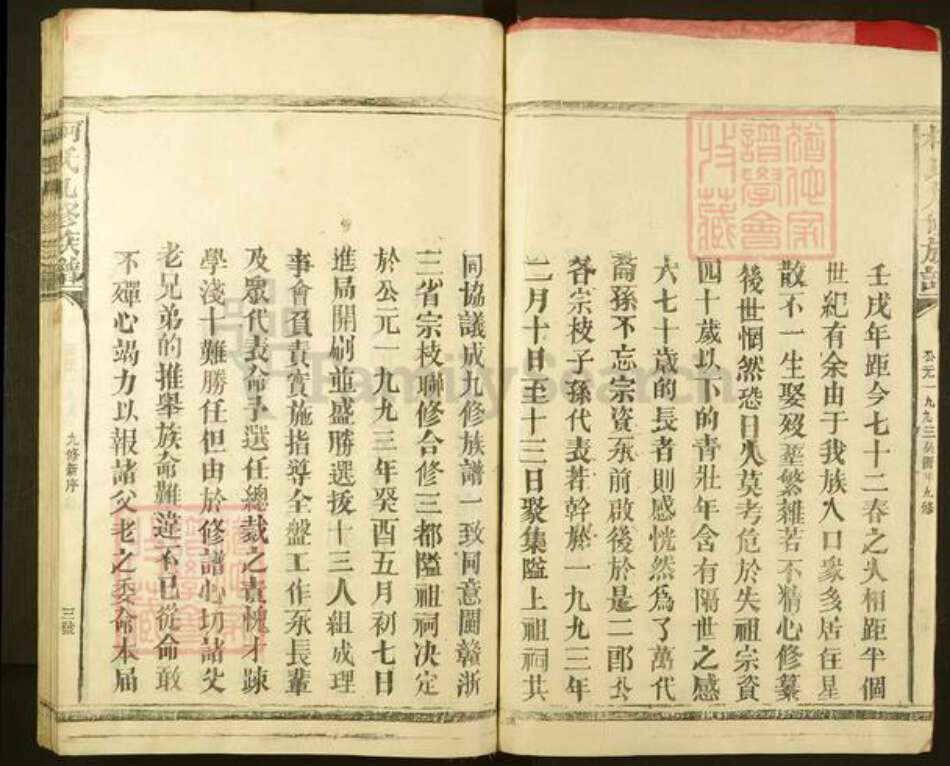 壬戌年距今七十二春之久相距半個
世紀有余由于我族人口衆多居住星
散不一生娶殁塟繁雜若不精心修纂
後世惘然恐日久莫考危於失祖宗資
四十歲以下的青壯年含有隔世之感
六七十歲的長者則感恍然為了萬代
裔孫不忘宗資永前啟後於是二郎公
各宗枝子孫代表若幹於一九九三年
二月十日至十三日聚集隘上祖祠共
同協議成九修族譜一致同意閩贛浙
三省宗枝聯修合修三都隘祖祠决定
於公元一九九三年癸酉五月初七日
進局開刷並盛勝選拔十三人組成理
事會負責實施指導全盤工作承長輩
及眾代表命予選任總裁之責愧才疎
學淺十難勝任但由於修譜心切諸父
老兄弟的推舉族命難違不已從命敢
不殫心竭力以報諸父老之委命本届
何氏九修族譜
九修新序
三號
譜學會
收藏
Family Search